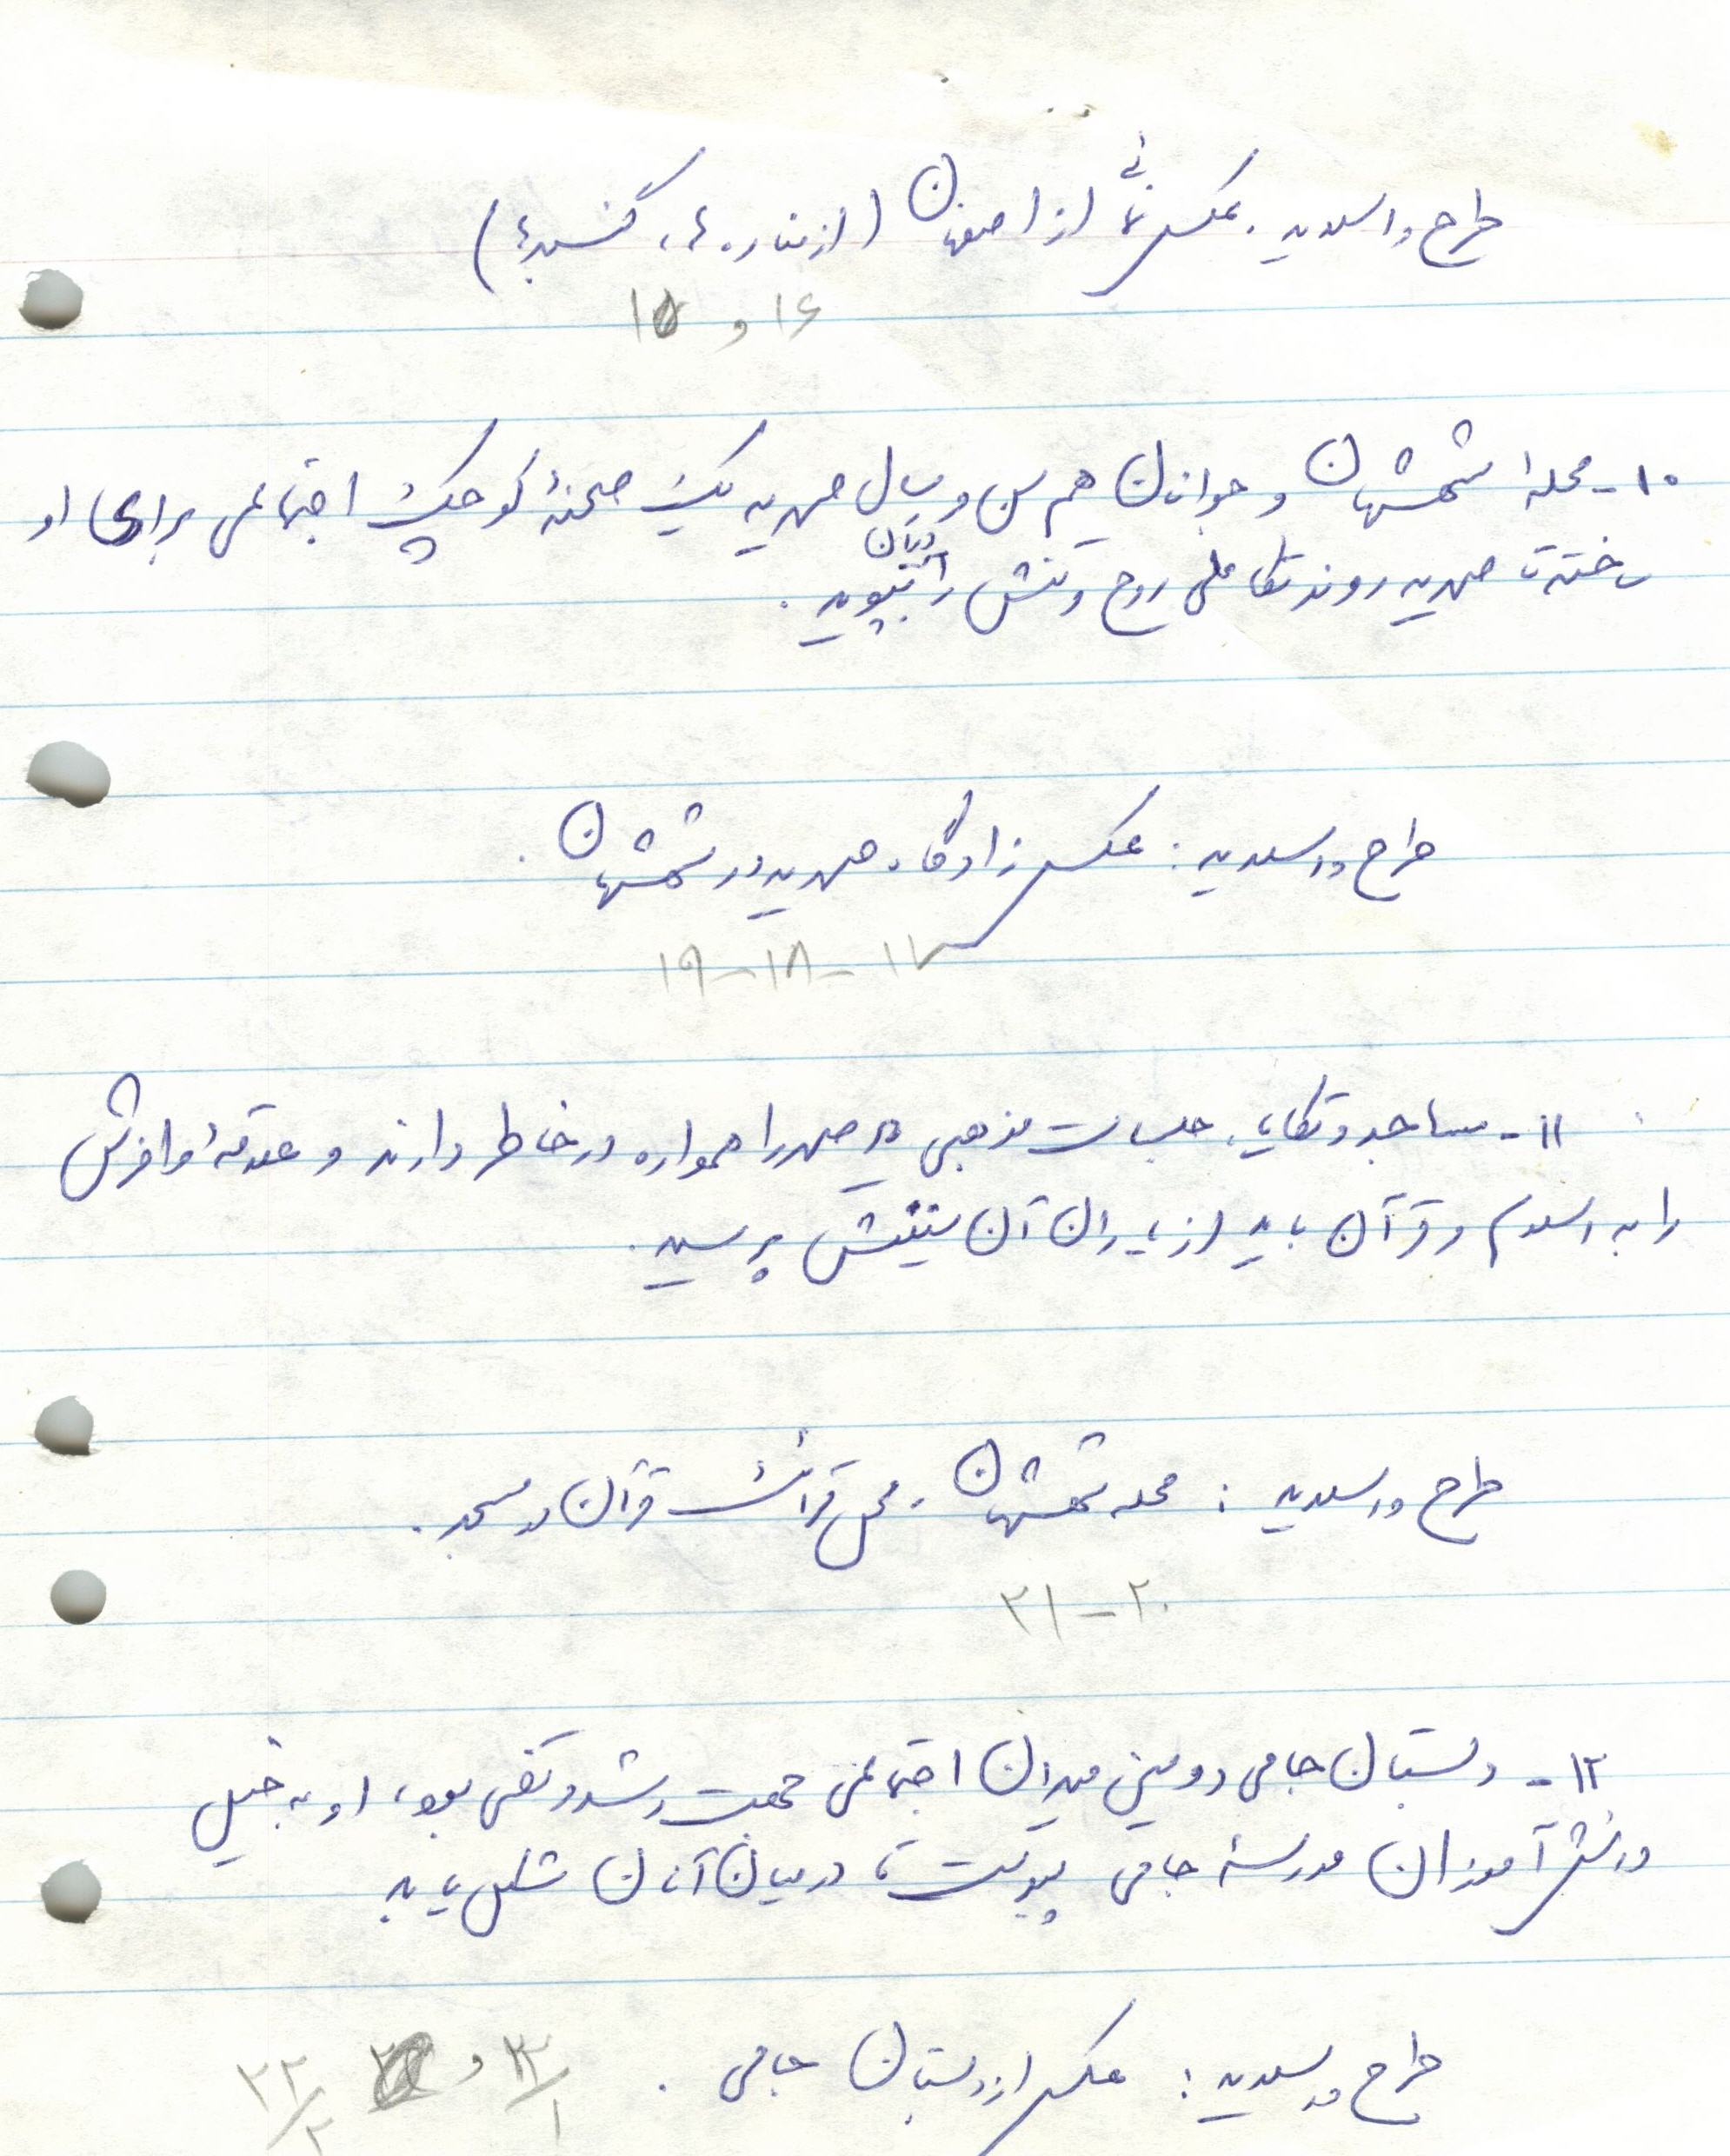 طرح و اسلاید. عکس نمائی از اصفهان (از مناره ها، گنبدها)
۱۶ و ۱۵
۱۰ـ محله شمشهان و جوانان هم سن و سال صمدیه یک صحنهٔ کوچک اجتماعی برای او
ساخته تا صمدیه روند تکاملی روح و تنش را در آنان بپوید.
طرح و اسلاید: عکس زادگاه صمدیه در شمشهان.
۱۷ - ۱۸ - ۱۹
۱۱ـ مساجد و تکایا، جلسات مذهبی صمد را همواره در خاطر دارند و علاقهٔ وافرش
را به اسلام و قرآن باید از یاران آن سنینش پرسید.
طرح و اسلاید: محله شمشهان، محل قرائت قرآن در مسجد.
۲۰ - ۲۱
۱۲ـ دبستان جامی دومین میدان اجتماعی جهت رشد و نقش بود، او به خیل
دانش آموزان مدرسهٔ جامی پیوست تا در میان آنان شکل یابد
طرح و اسلاید: عکس از دبستان جامی.
۲۲/۱ و ۲۲/۲